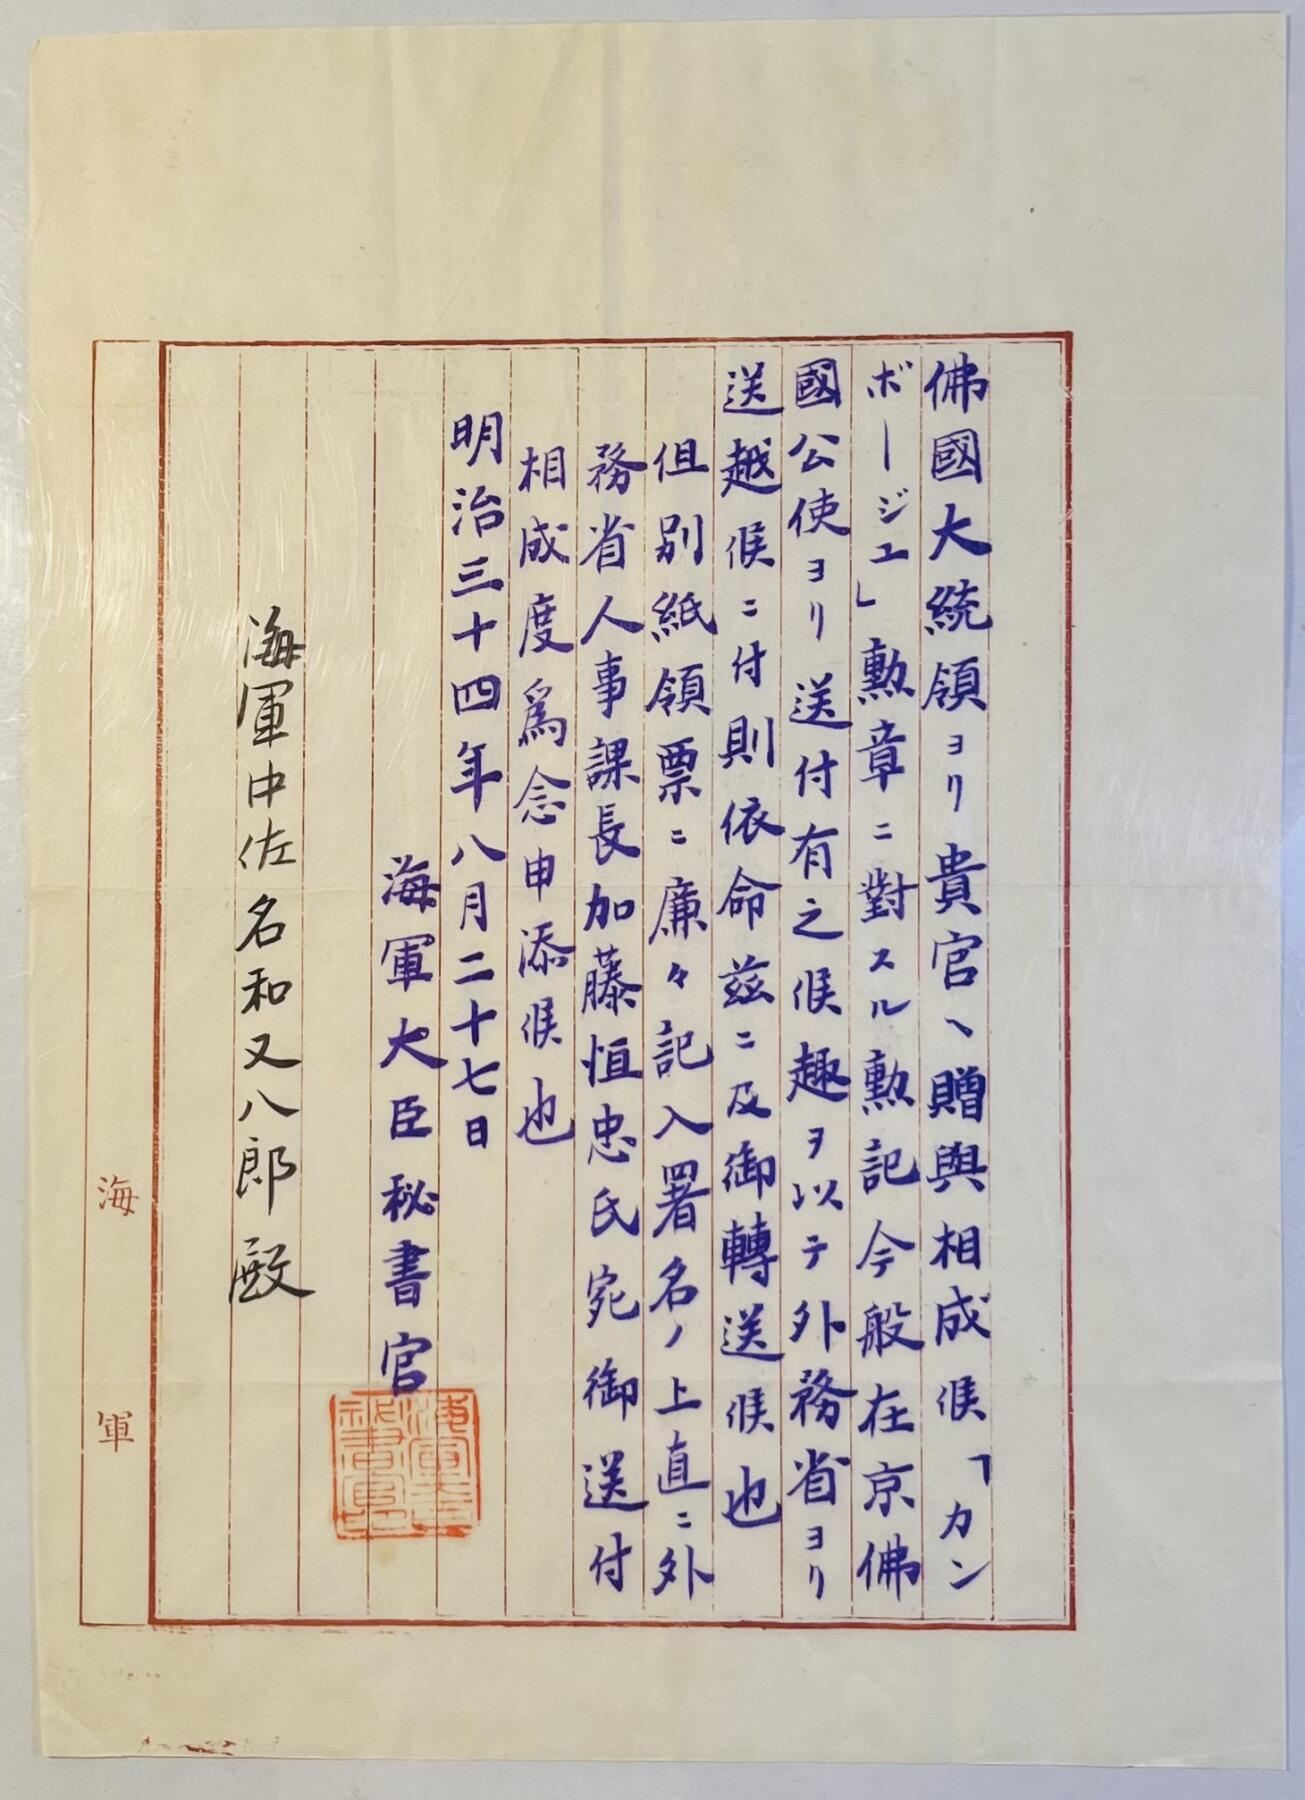 佛國大統領ヨリ貴官ヘ贈與相成候「カン
ボージユ」勲章ニ對スル勲記今般在京佛
國公使ヨリ送付有之候趣ヲ以テ外務省ヨリ
送越候ニ付則依命茲ニ及御轉送候也
但別紙領票ニ廉々記入署名ノ上直ニ外
務省人事課長加藤恒忠氏宛御送付
相成度為念申添候也
明治三十四年八月二十七日
海軍大臣秘書官
海軍中佐名和又八郎殿
海軍